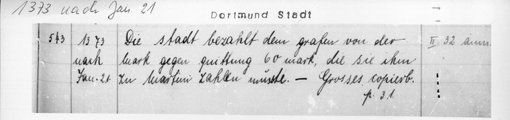 1373 nach Jan 21
Dortmund Stadt
513 1373 Die stadt bezahlt dem grafen von der II 32 anm.
nach Mark gegen quittung 60 mark, die sie ihm
Jan. 21 zu Martini zahlen müsste. — Grosses copierb.
p. 31